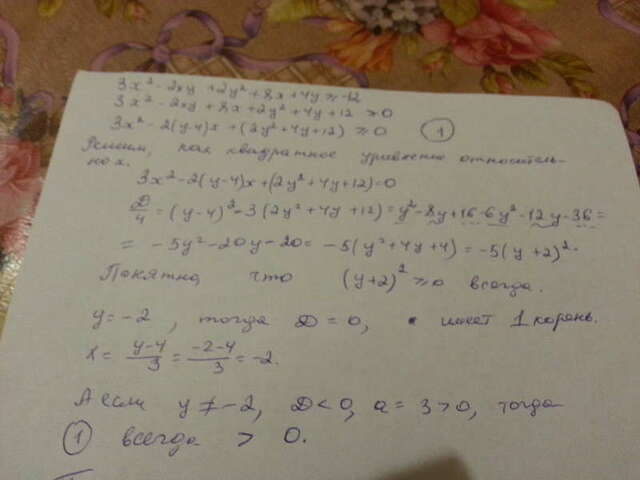 3x² - 2xy + 2y² + 8x + 4y ≥ -12
3x² - 2xy + 8x + 2y² + 4y + 12 ≥ 0
3x² - 2(y-4)x + (2y² + 4y + 12) ≥ 0 ①
Решим, как квадратное уравнение относитель-
но x.
3x² - 2(y-4)x + (2y² + 4y + 12) = 0
D/4 = (y-4)² - 3(2y² + 4y + 12) = y² - 8y + 16 - 6y² - 12y - 36 =
= -5y² - 20y - 20 = -5(y² + 4y + 4) = -5(y+2)².
Понятно, что (y+2)² ≥ 0 всегда.
y = -2, тогда D = 0, имеет 1 корень.
x = (y-4)/3 = (-2-4)/3 = -2.
А если y ≠ -2, D < 0, a = 3 > 0, тогда
① всегда > 0.